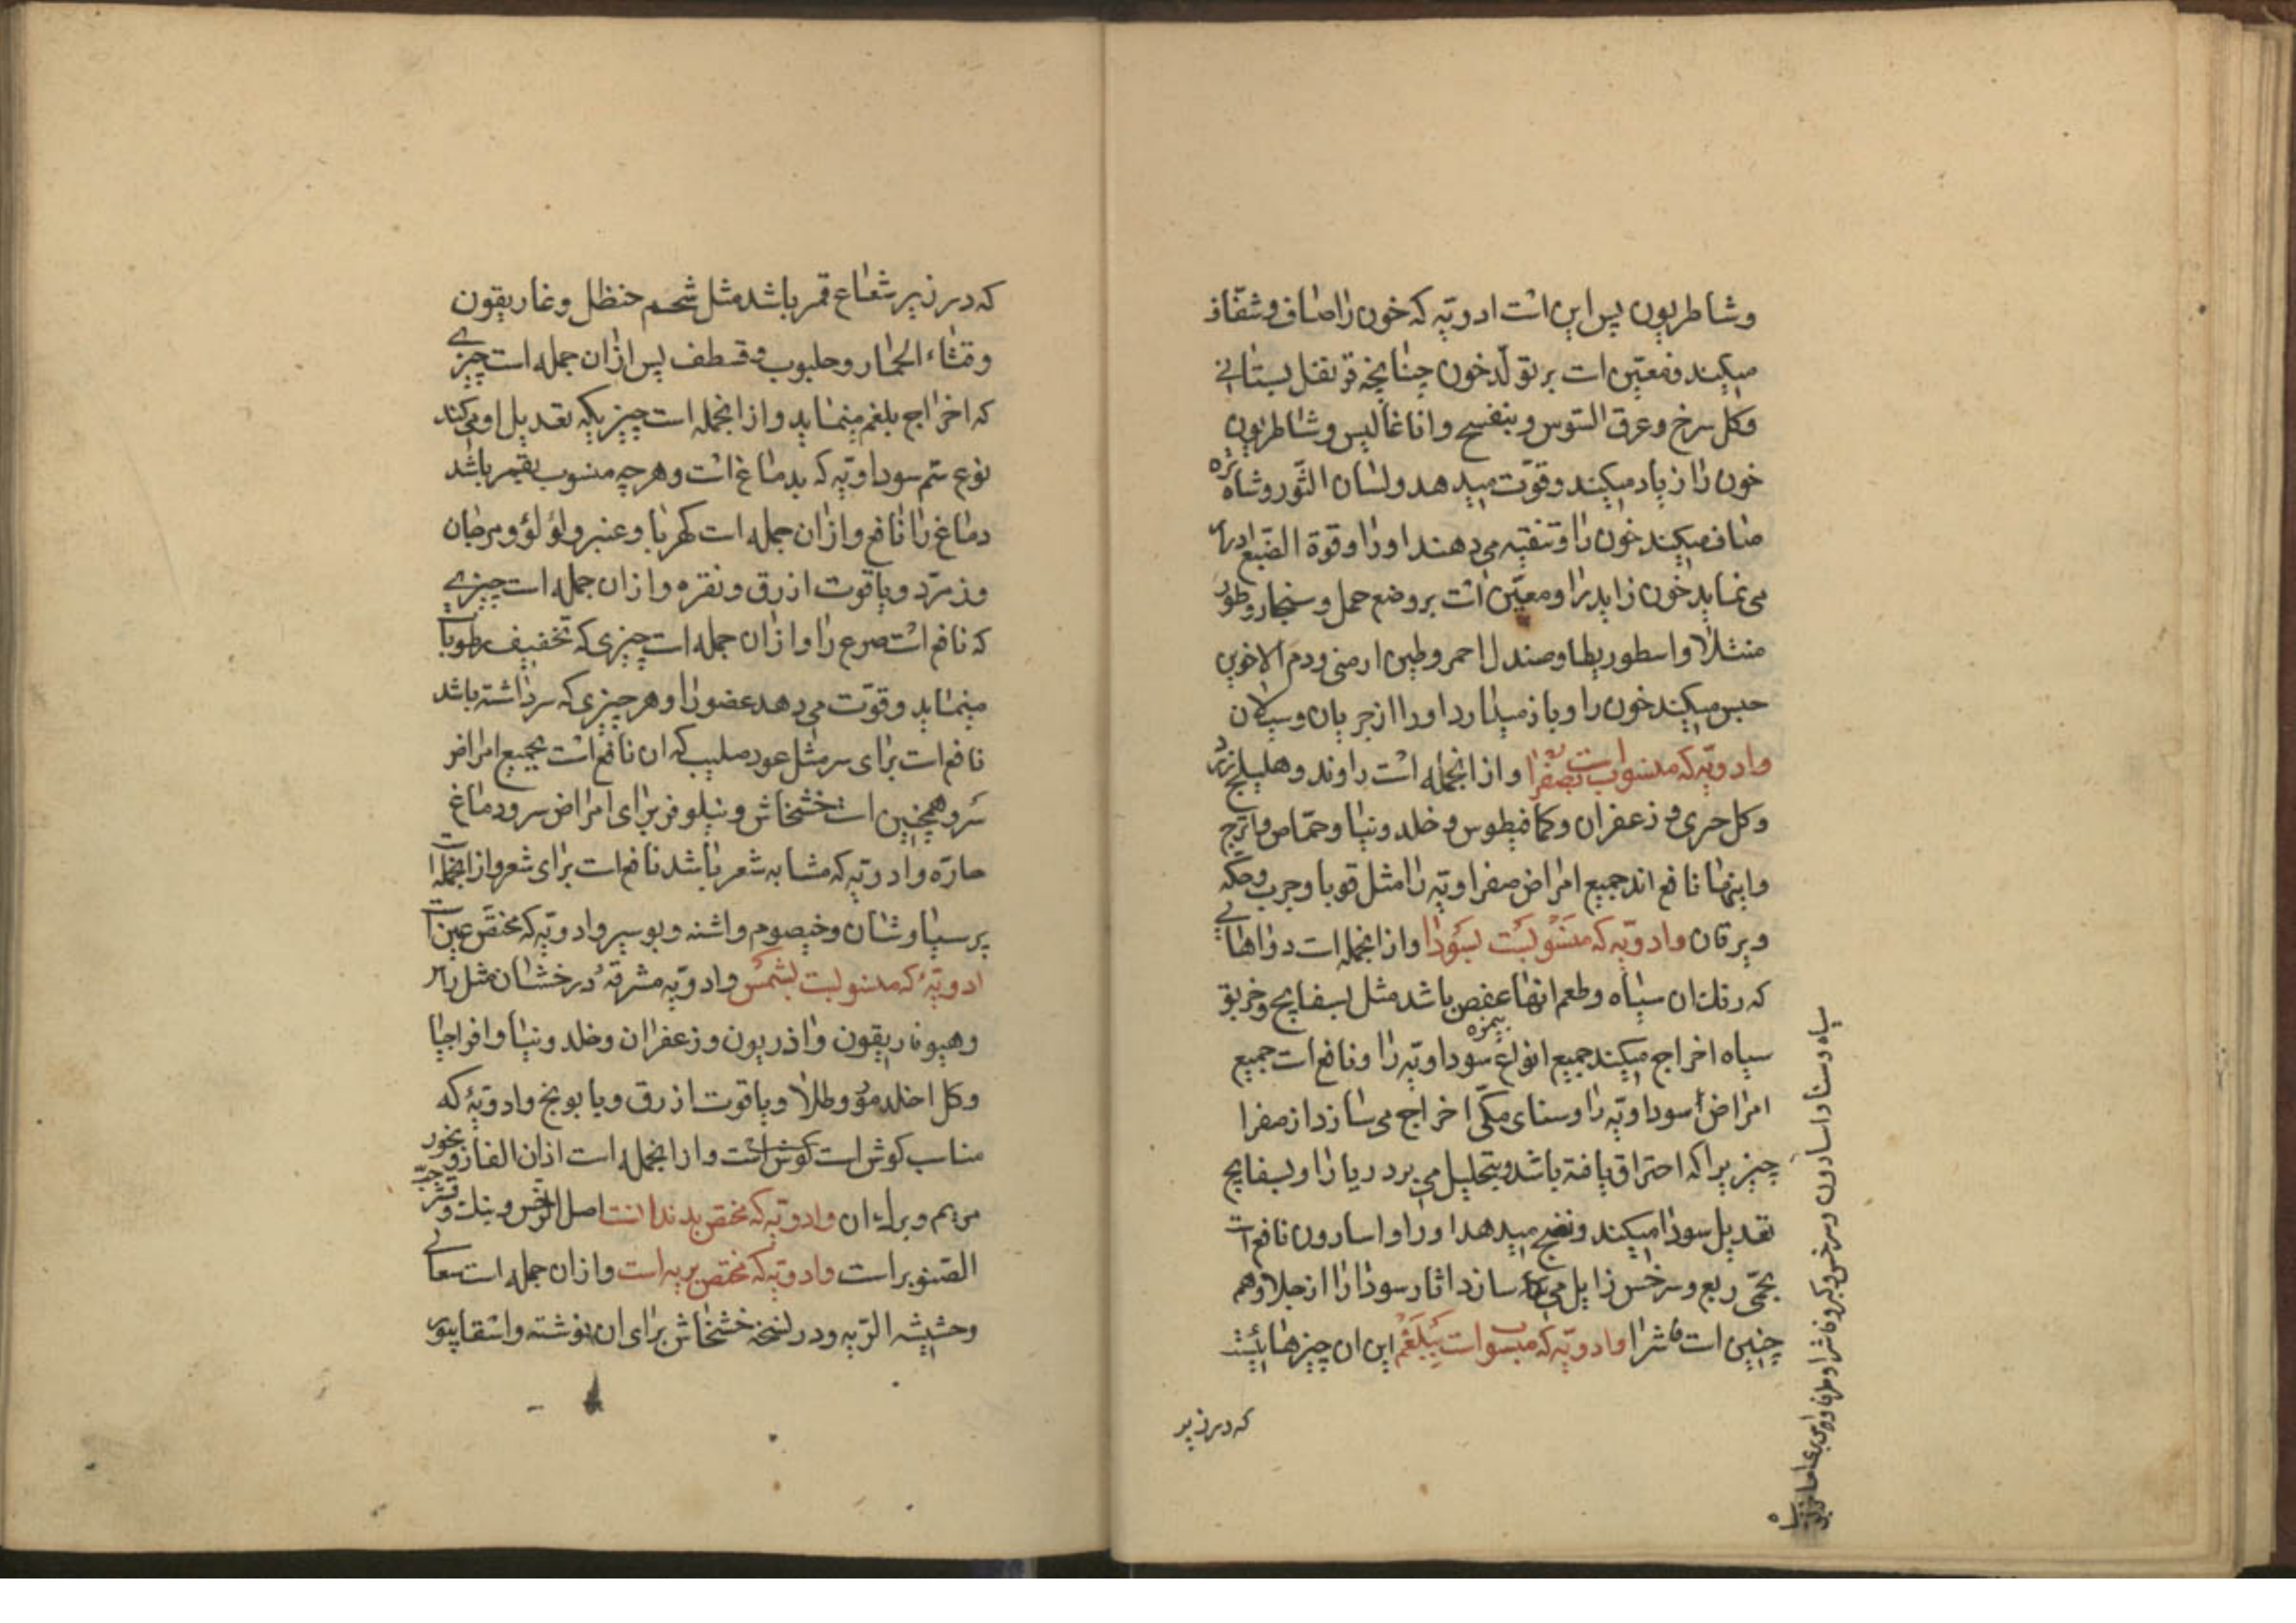 وشاطریون پس این است ادویّه که خون را صاف و شفّاف
میکند و معیّن است بر تولّد خون چنانچه قرنفل بستانی
وکل سرخ و عرق السّوس و بنفسج و اناغالیس و شاطریون
خون را زیاد میکند و قوّت میدهد و لسان الثّور و شاه تره
صاف میکند خون را و تنقیه می دهند او را و قوة الصّبغ ادرار
می نماید خون زاید را و معیّن است بر وضع حمل و سنجار و
منثلا و اسطوریطا و صندل احمر و طین ارمنی و دم الاخوین
حبس میکند خون را و باز میدارد او را از جریان و سیلان
وادویّه که منسوبست بصفرا و از انجمله است راوند و هلیلج زرد
وکل حری و زعفران و کمافیطوس و خلدونیا و حمّاص و اترج
و اینها نافع اند جمیع امراض صفراویّه را مثل قوبا و جرب و حکّه
و یرقان وادویّه که منسوبست بسودا و از انجمله است دواهائی
که رنك ان سیاه و طعم انها عفص بیمزه باشد مثل بسفایج و خربق
سیاه اخراج میکند جمیع انواع سوداویّه را و نافع است جمیع
امراض سوداویّه را و سنای مکّی اخراج می سازد از صفرا
چیزیرا که احتراق یافته باشد و بتحلیل می برد ریا را و بسفایج
تعدیل سودا میکند و نضج میدهد او را و اسارون نافع است
بحمّی ربع و سرخس زایل می سازد اثار سودا را از جلد و هم
چنین است فاشرا وادویّه که منسوبست ببلغم این ان چیزهائیست
که در زیر
سیاه و سنا و اسارون و سرخس و کبر و فاشرا و طرفا
که در زیر شعاع قمر باشد مثل شحم حنظل و غاریقون
و قثاء الحمار و حلبوب و قسطف پس از ان جمله است چیزی
که اخراج بلغم مینماید و از انجمله است چیزیکه تعدیل او می کند
نوع ستم سوداویّه که بدماغ است و هر چه منسوب بقمر باشد
دماغ را نافع و از ان جمله است کهربا و عنبر و لؤلؤ و مرجان
و زمرّد و یاقوت ازرق و نقره و از ان جمله است چیزی
که نافع است صرع را و از ان جمله است چیزی که تخفیف رطوبات
مینماید و قوّت می دهد عضو را و هر چیزی که سر داشته باشد
نافع است برای سر مثل عود صلیب که ان نافع است بجمیع امراض
سر و همچنین است خشخاش و نیلوفر برای امراض سر و دماغ
حارّه و ادویّه که مشابه شعر باشد نافع است برای شعر و از انجمله است
پرسیاوشان و خیصوم و اشنه و بوسیر و ادویّه که مختصّ عین است
ادویّهٔ که منسوبست بشمس و ادویّه مشرقهٔ درخشان مثل
و هیوفاریقون و اذریون و زعفران و خلدونیا و افراجیا
وکل اخلدمو و طلا و یاقوت ازرق و بابونج و ادویّهٔ که
مناسب کوش است کوش است و از انجمله است اذان الفار و بخور
مریم و برای ان وادویّه که مختصّ بدندانست اصل الرّخس و بنك و قشر حبّ
الصّنوبر است وادویّه که مختصّ بریه است و از ان جمله است سعالی
و حشیشه الرّیه و در نسخه خشخاش برای ان نوشته و